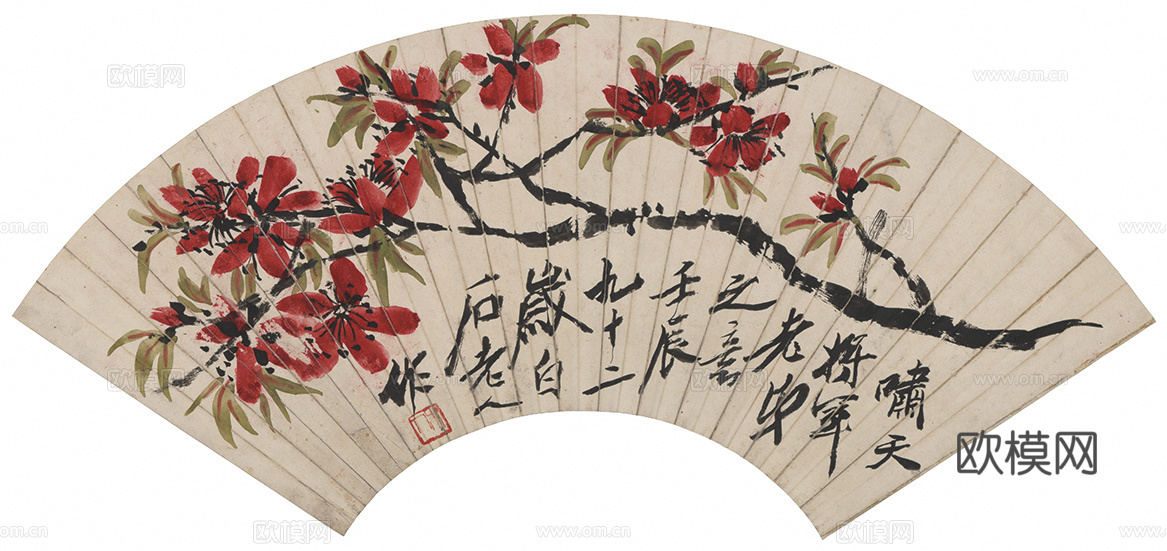 嘯天
將軍
老
之
壬辰
九十二
歲白
石老人
作
欧模网
欧模网
www.om.cn